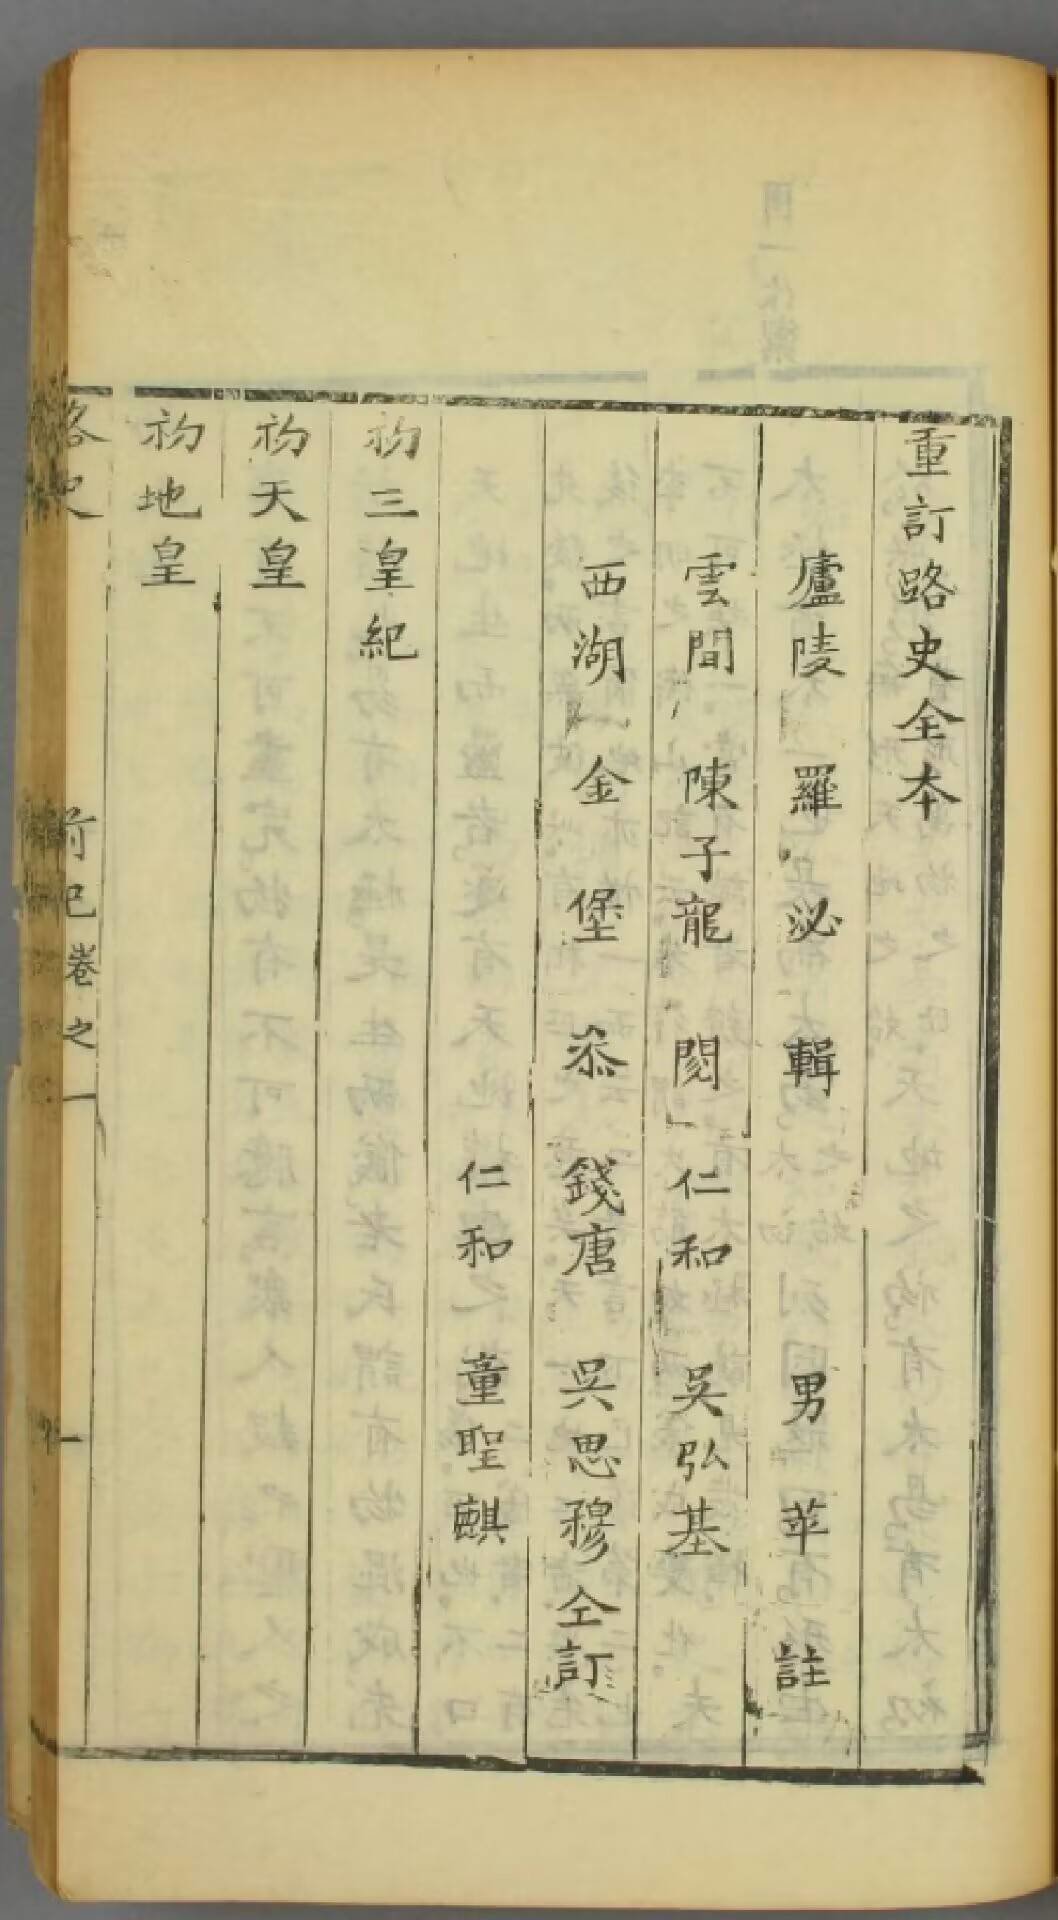 重訂路史全本
廬陵 羅泌 輯 男苹 註
雲間 陳子龍 閱 仁和 吳弘基
西湖 金堡 叅 錢唐 吳思穆 仝訂
仁和 童聖麒
初三皇紀
初天皇
初地皇
路史 前紀卷之一 一